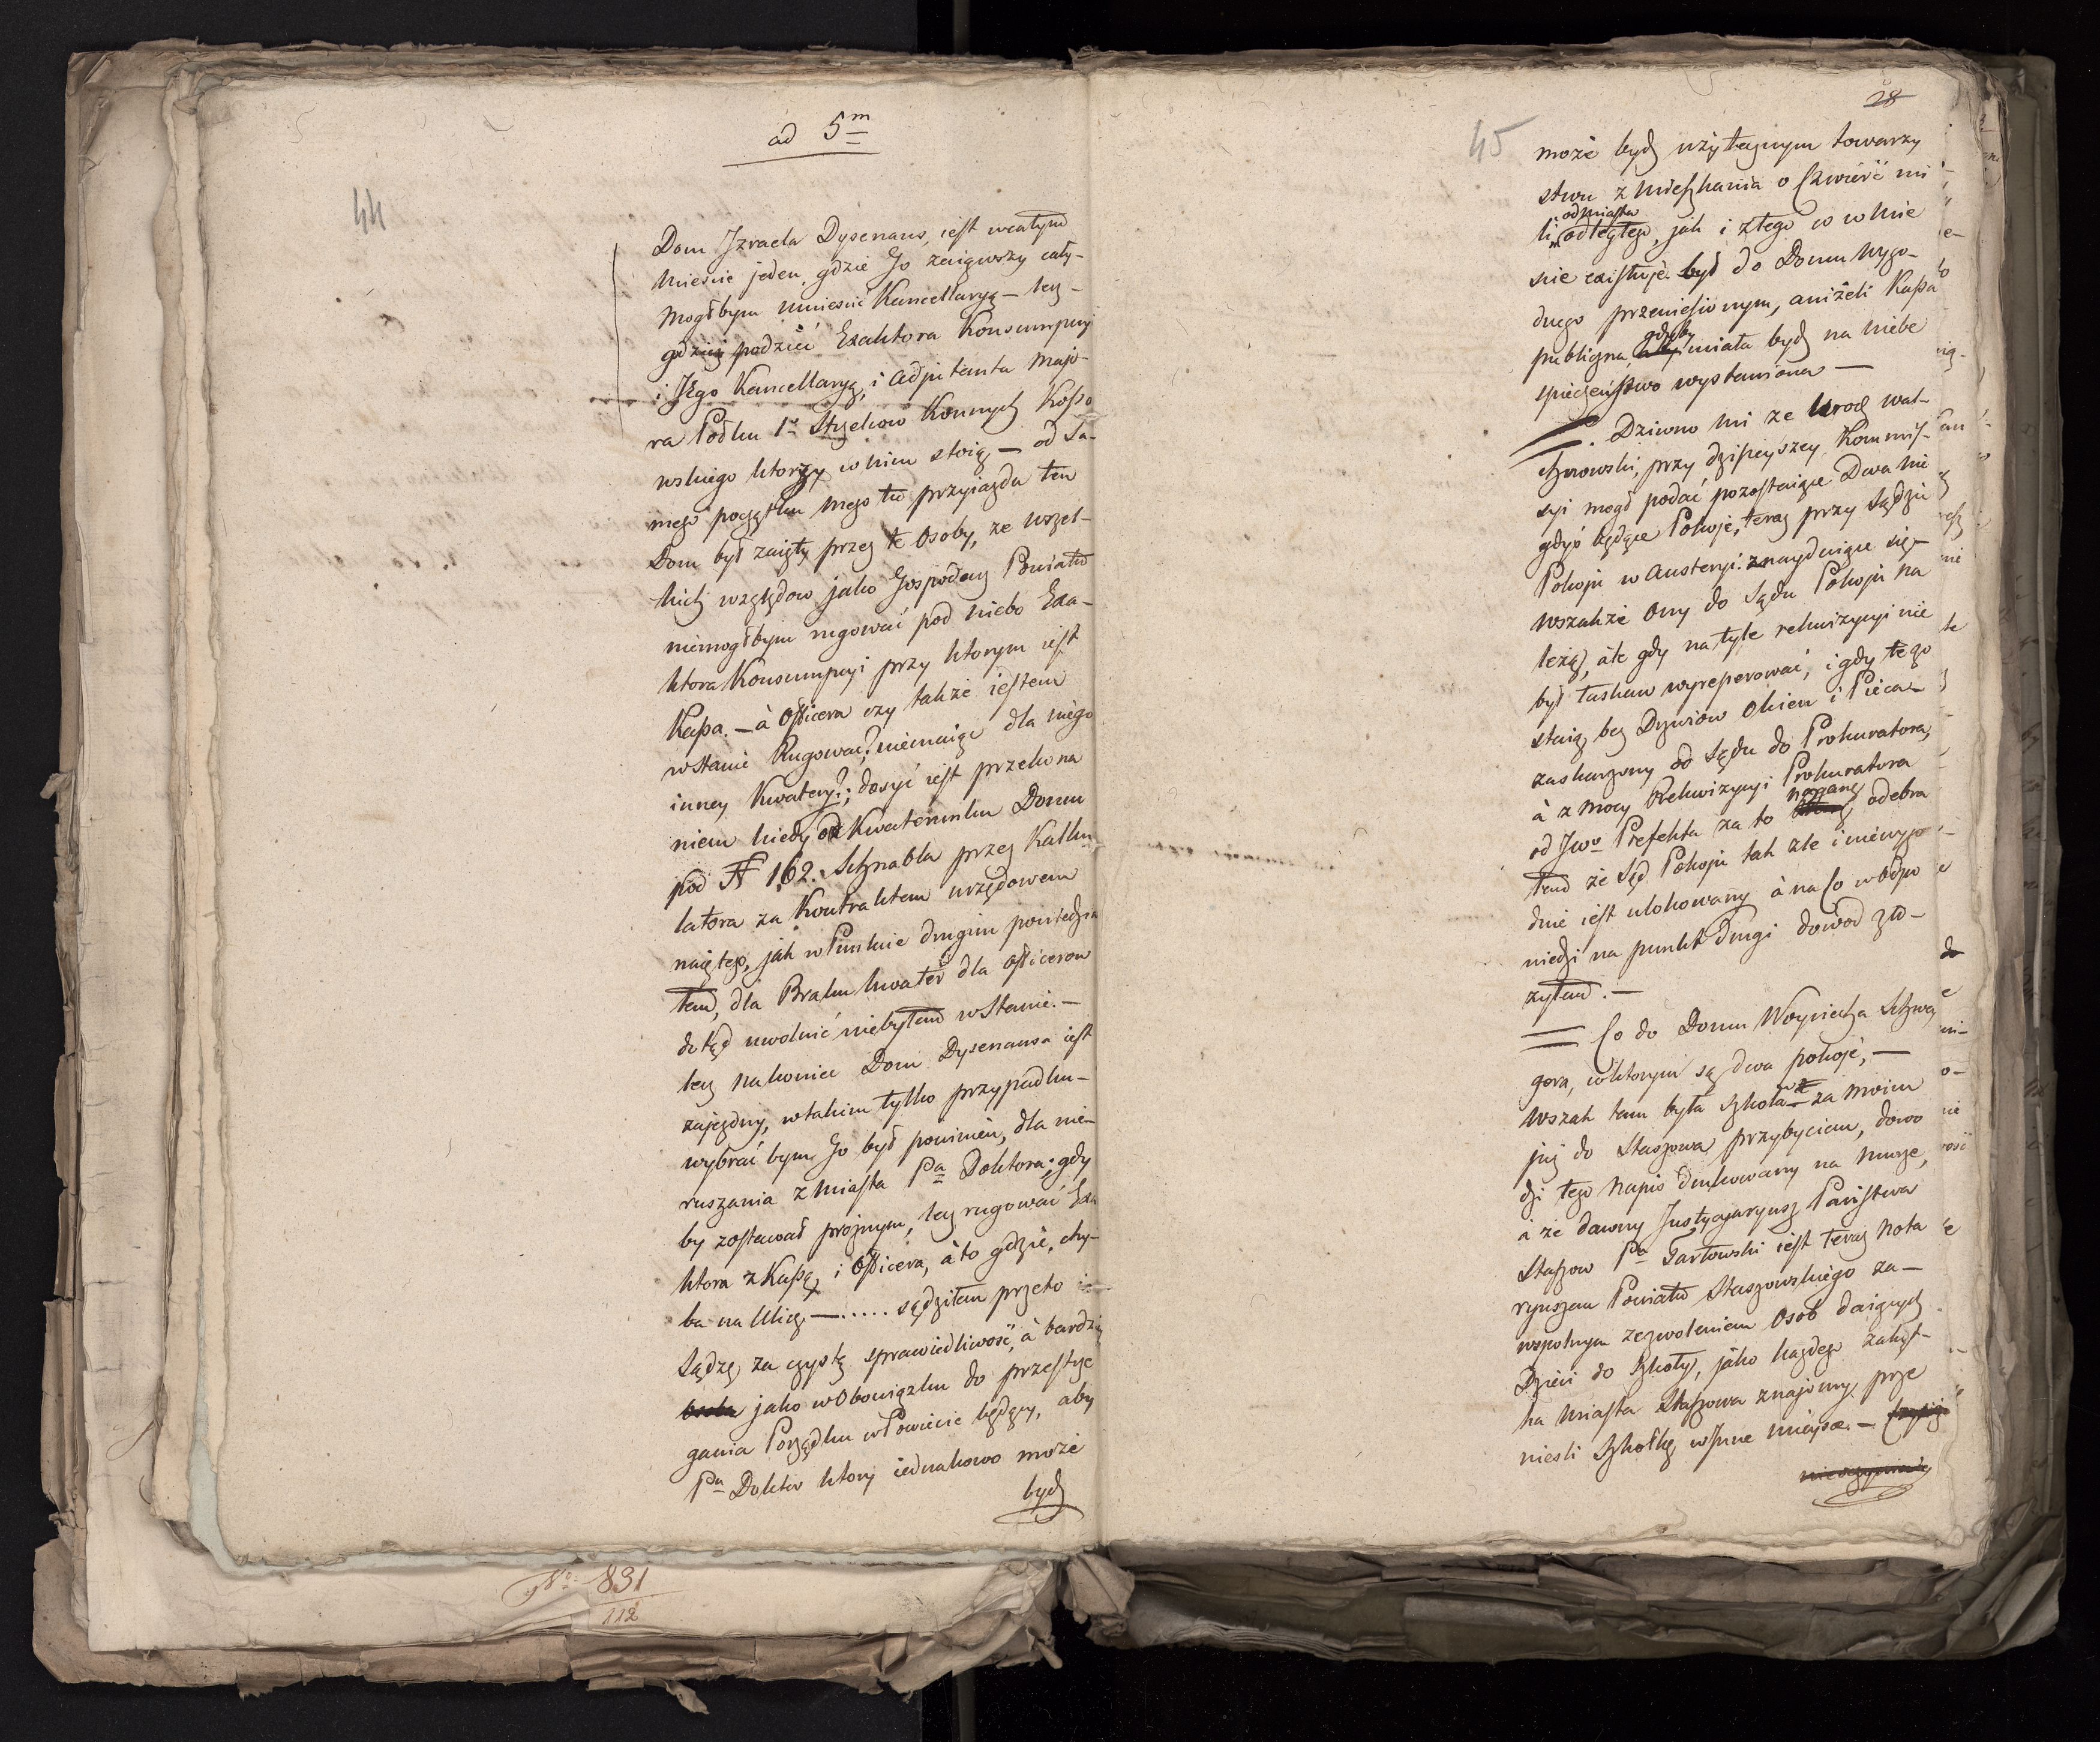 ad 5m
44
Dom Izraela Dysenaus, iest wcałym
Mieście jeden, gdzie Go zaiąwszy cały-
mogłbym umieścić Kancellaryą – lecz –
gdzież podzieć Exaktora Konsumpcyi
i Jego Kancellaryą, i Adjutanta Majo-
ra Połku 1o Strzelcow Konnych Kosso
wskiego ktorzy w nim stoią – od Sa-
mego początku mego tu przyiazdu ten
Dom był zaięty przez te Osoby, ze wszel-
kich względow jako Gospodarz Powiatu
niemogłbym rugować pod niebo Exa-
ktora Konsumpcyi przy ktorym iest
Kassa. – à Officera czy także iestem
wstanie Rugować? niemaiąc dla niego
inney Kwatery?; dosyć iest przekona
niem kiedy od Kwaterunku Domu
pod N 162. Schnabla przez Kalku
latora za Kontraktem urzędowem
naiętego, jak w Punkcie drugim powiedzia
łem, dla Braku kwater dla Officerow
dotąd uwolnić niebyłem wstanie. –
lecz nakoniec Dom Dysenausa iest
zajezdny, wtakim tylko przypadku –
wybrać bym Go był powinien, dla nie-
ruszania z Miasta Pa Doktora; gdy
by zostawał prożnym, lecz rugować Exa
ktora z Kassą, i Officera, à to gdzie, chy-
ba na Ulicę. – ..... sądziłem przeto i
Sądzę, za czystą sprawiedliwość, à bardziey
jako w Obowiązku do przestrze
gania Porządku w Powiecie będący, aby
Pa Doktor ktory iednakowo może
bydź
No 831
112
28
45
może bydź użytecznym towarzy
stwu z Mieszkania o Cwierć mi
od miasta
li odległego, jak i ztego co w Mie
ście existuje. był do Domu Wygo-
dnego przeniesionym, aniżeli Kassa
gdyby
publiczna, miała bydź na niebe
spieczeństwo wystawiona –
Dziwno mi ze Uroch Wal-
chnowski, przy dzisieyszey Kommis-
syi mogł podać pozostaiące Dwa nie
gdyś będące Pokoje, teraz przy Sądzie
Pokoju w Austeryi znayduiące się –
wszakże Ony do Sądu Pokoju na
leżą, ale gdy na tyle rekwizycyi nie
był łaskaw wyreperować, i gdy tego
staią bez Drzwiow Okien i Pieca –
zaskarzony od Sądu do Prokuratora,
à z mocy Rekwizycyi Prokuratora
naganę
od Jwo Prefekta za to odebra
łem że Sąd Pokoju tak źle i niewygo
dnie iest ulokowany à na Co w Odpo
wiedzi na punkt Drugi dowod zło-
zyłem. –
Co do Domu Woyciecha Schwa
gera, wktorym są dwa pokoje, –
wszak tam była szkoła – za moim
już do Staszowa przybyciem, dowo
dzi tego Napis drukowany na Murze,
à że dawny Justycyaryusz Państwa
Staszow Pa Tarłowski iest teraz Nota
ryuszem Powiatu Staszowskiego za –
wspolnym zezwoleniem Osob daiących
Dzieci do Szkoły, jako każdego zakąt-
ka Miasta Staszowa znajomy, prze
niesli Szkołkę w Inne mieysce. –